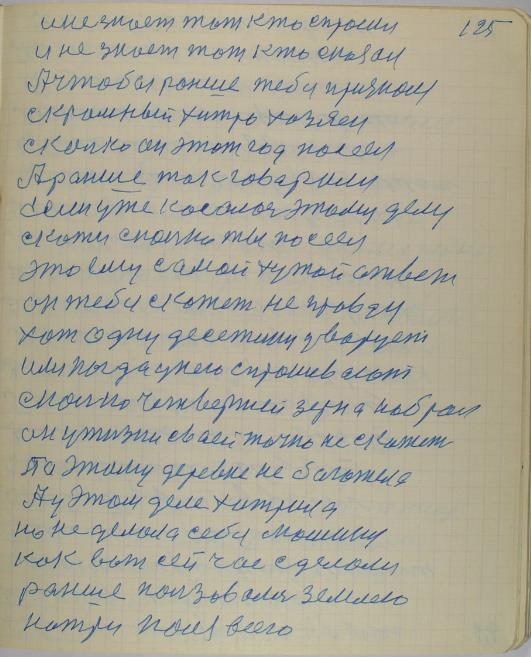 и не знает тот кто спросил 125
и не знает тот кто сказал
А чтобы раньше тебя признал
скромный хитро хозяен
сколко он этот год посеел
А раньше так говарили
Если уже косалося этому делу
скажи сколко ты посеел
это ему самой худой ответ
он тебя скажет не правду
хот одну десетину уварует
или когда у него спрошивают
сколко четвертей зерна набрал
он у жизни сваей точно не скажет
Па этому деревне не баложела
А у этом деле хитрила
но не делола себя машину
как вот сей час сделоли
раньше ползовался землею
на три поля всего